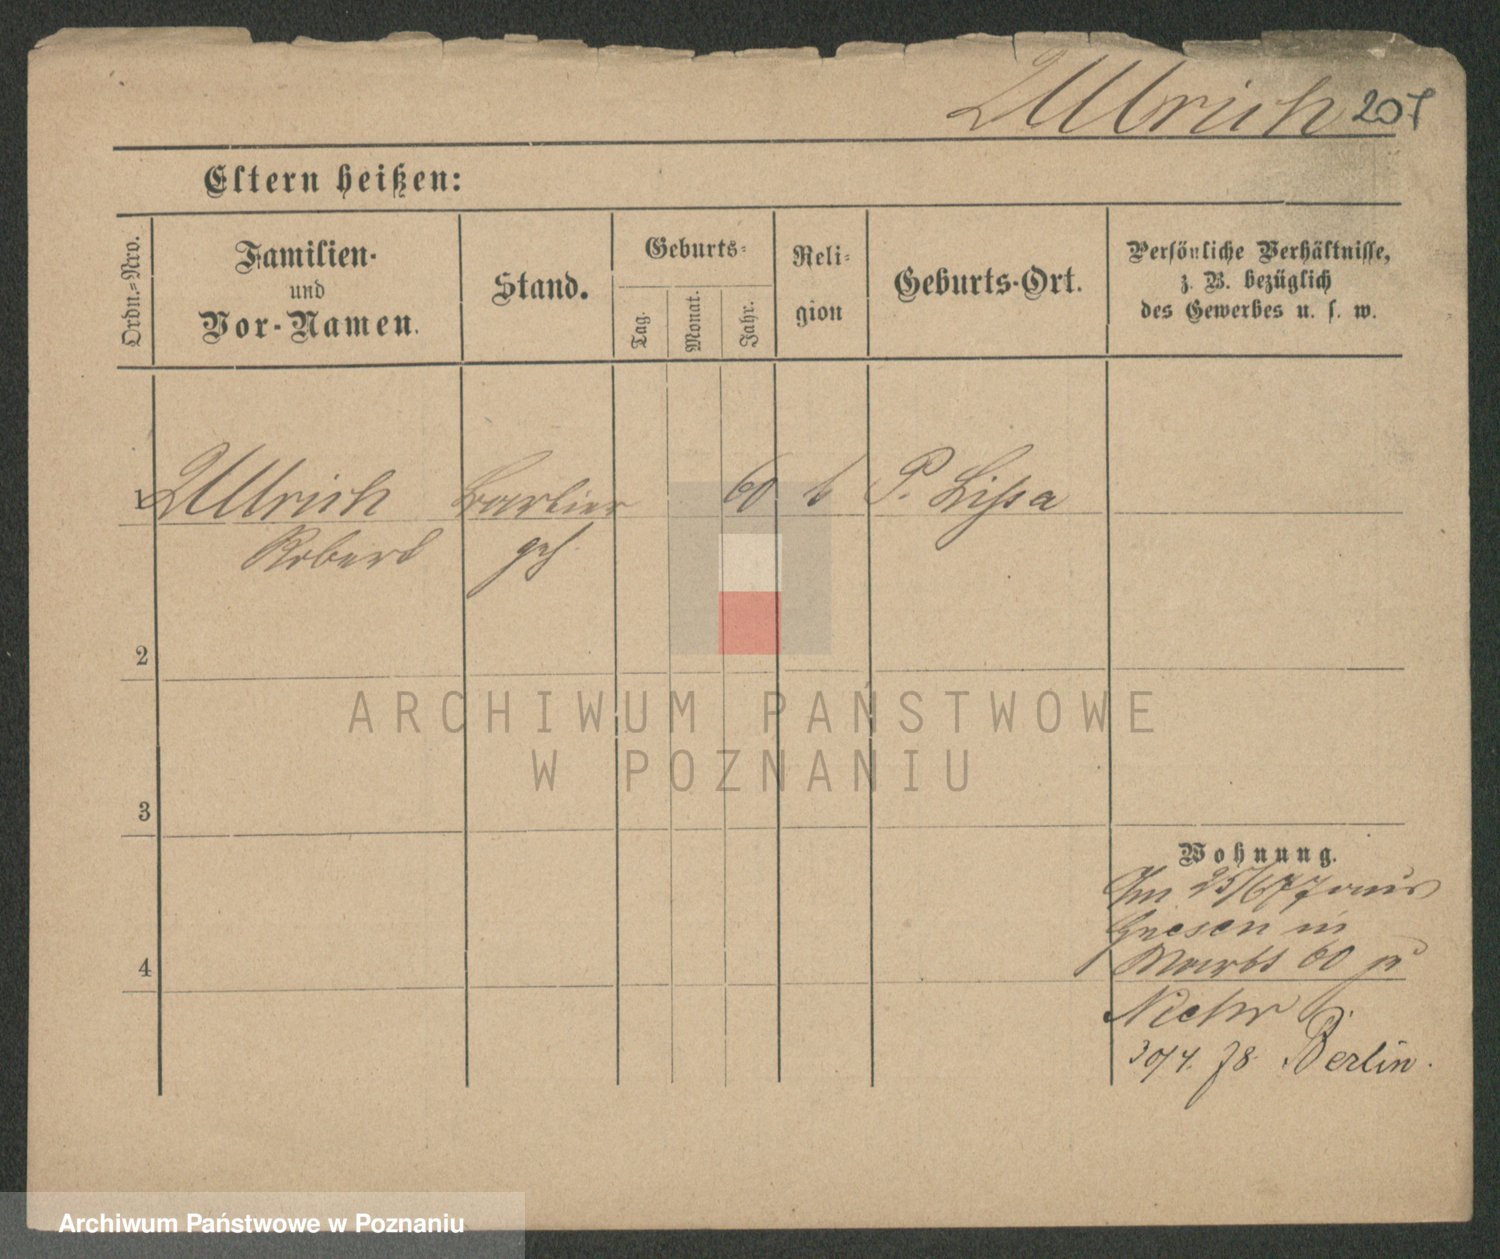 Ullrich 207
Eltern heißen:
Ordn.-Nro.
Familien-
und
Vor-Namen.
Stand.
Geburts-
Tag.
Monat.
Jahr.
Reli-
gion
Geburts-Ort.
Persönliche Verhältnisse,
z. B. bezüglich
des Gewerbes u. s. w.
1 Ullrich Barbier 60 P. Lissa
Robert
2
ARCHIWUM PAŃSTWOWE
W POZNANIU
3
Wohnung.
25/6 77 aus
Gnesen in
4
60
30/4. 78. Berlin.
Archiwum Państwowe w Poznaniu